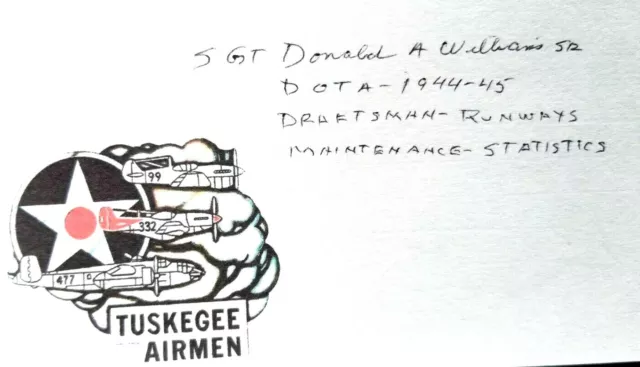 SGT Donald A Williams SR
DOTA-1944-45
DRAFTSMAN-RUNWAYS
MAINTENANCE-STATISTICS
99
332
477 C
TUSKEGEE
AIRMEN